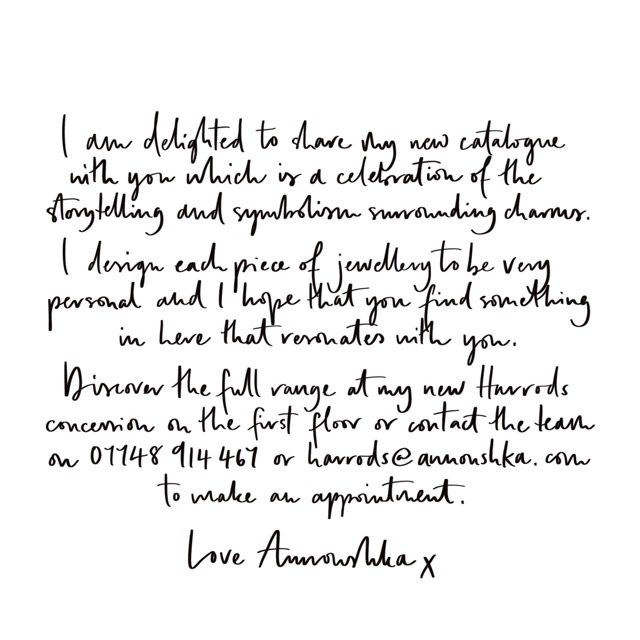 I am delighted to share my new catalogue
with you which is a celebration of the
storytelling and symbolism surrounding charms.
I design each piece of jewellery to be very
personal and I hope that you find something
in here that resonates with you.
Discover the full range at my new Harrods
concession on the first floor or contact the team
on 07748 914 467 or harrods@annoushka.com
to make an appointment.
Love Annoushka x